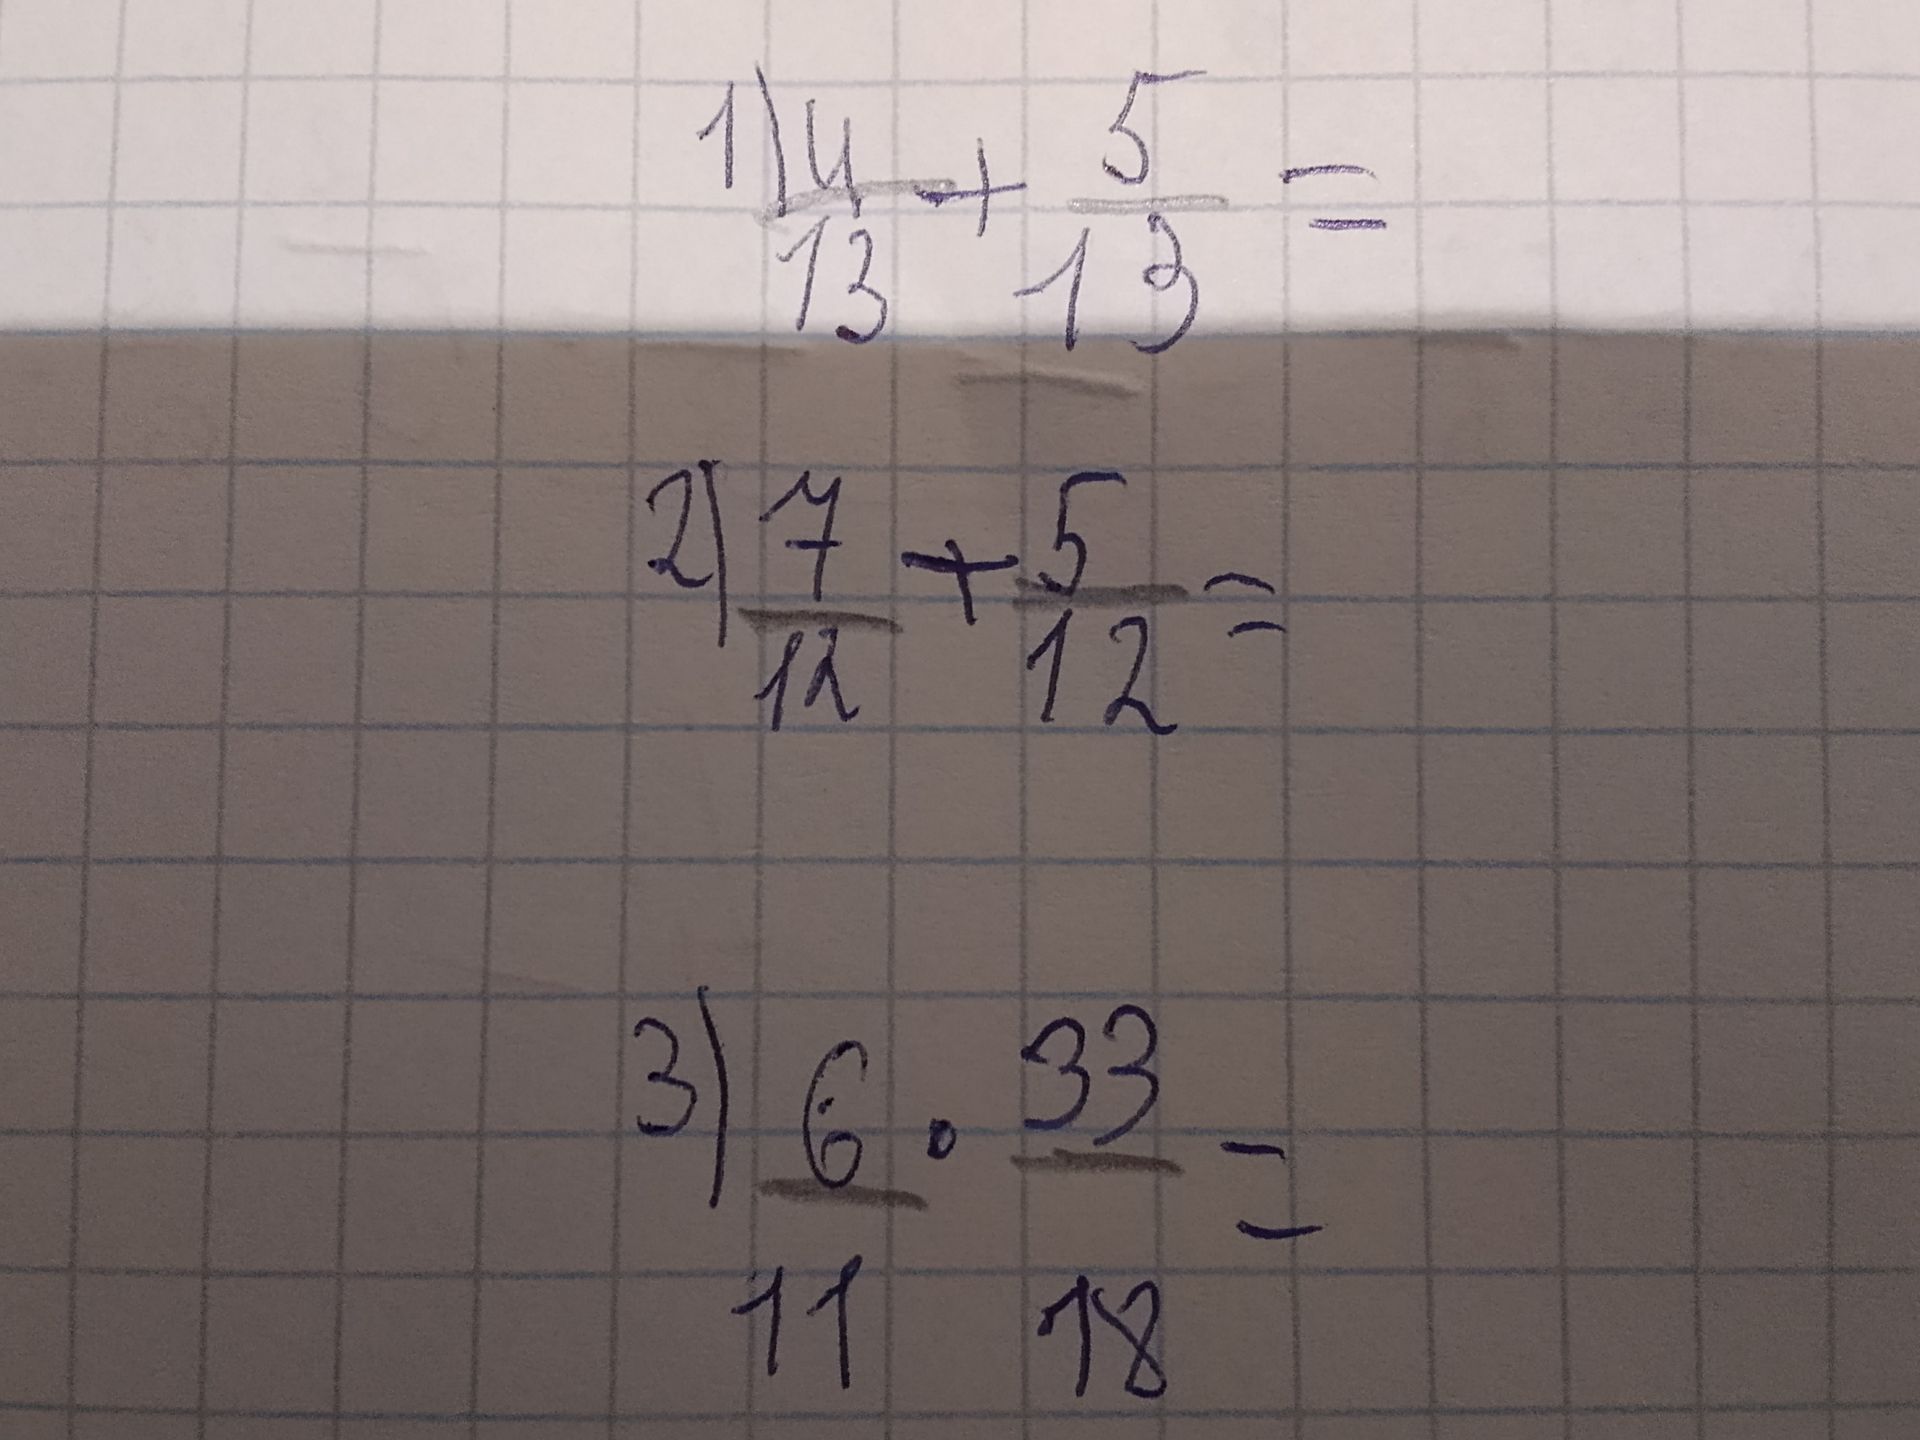 1) 4/13 + 5/13 =
2) 7/12 + 5/12 =
3) 6/11 · 33/18 =